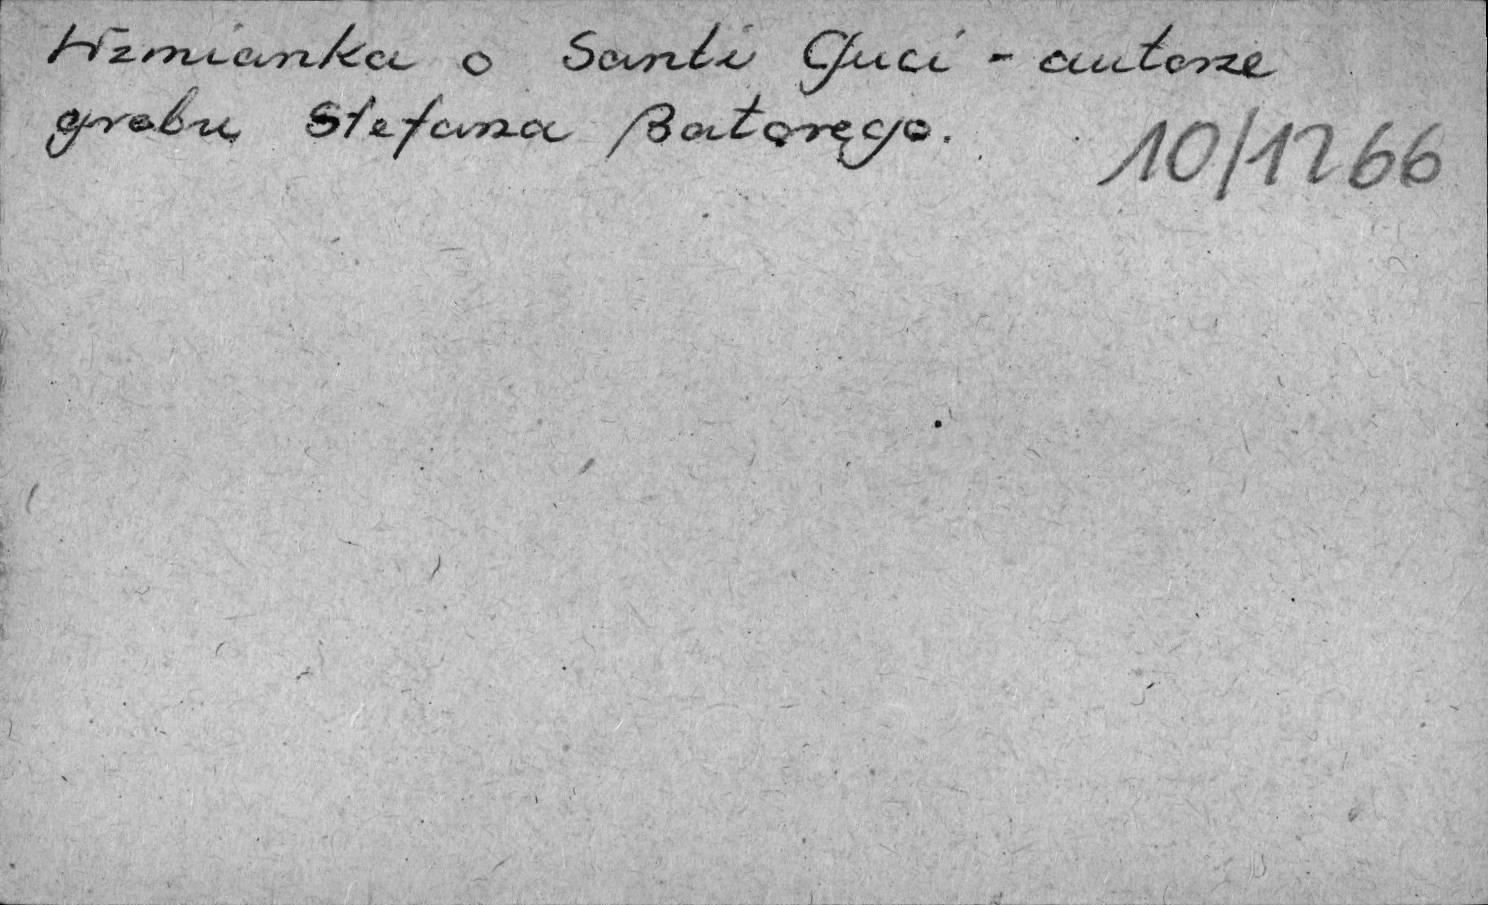 Wzmianka o Santi Guci - autorze
grobu Stefana Batorego.
10/1266